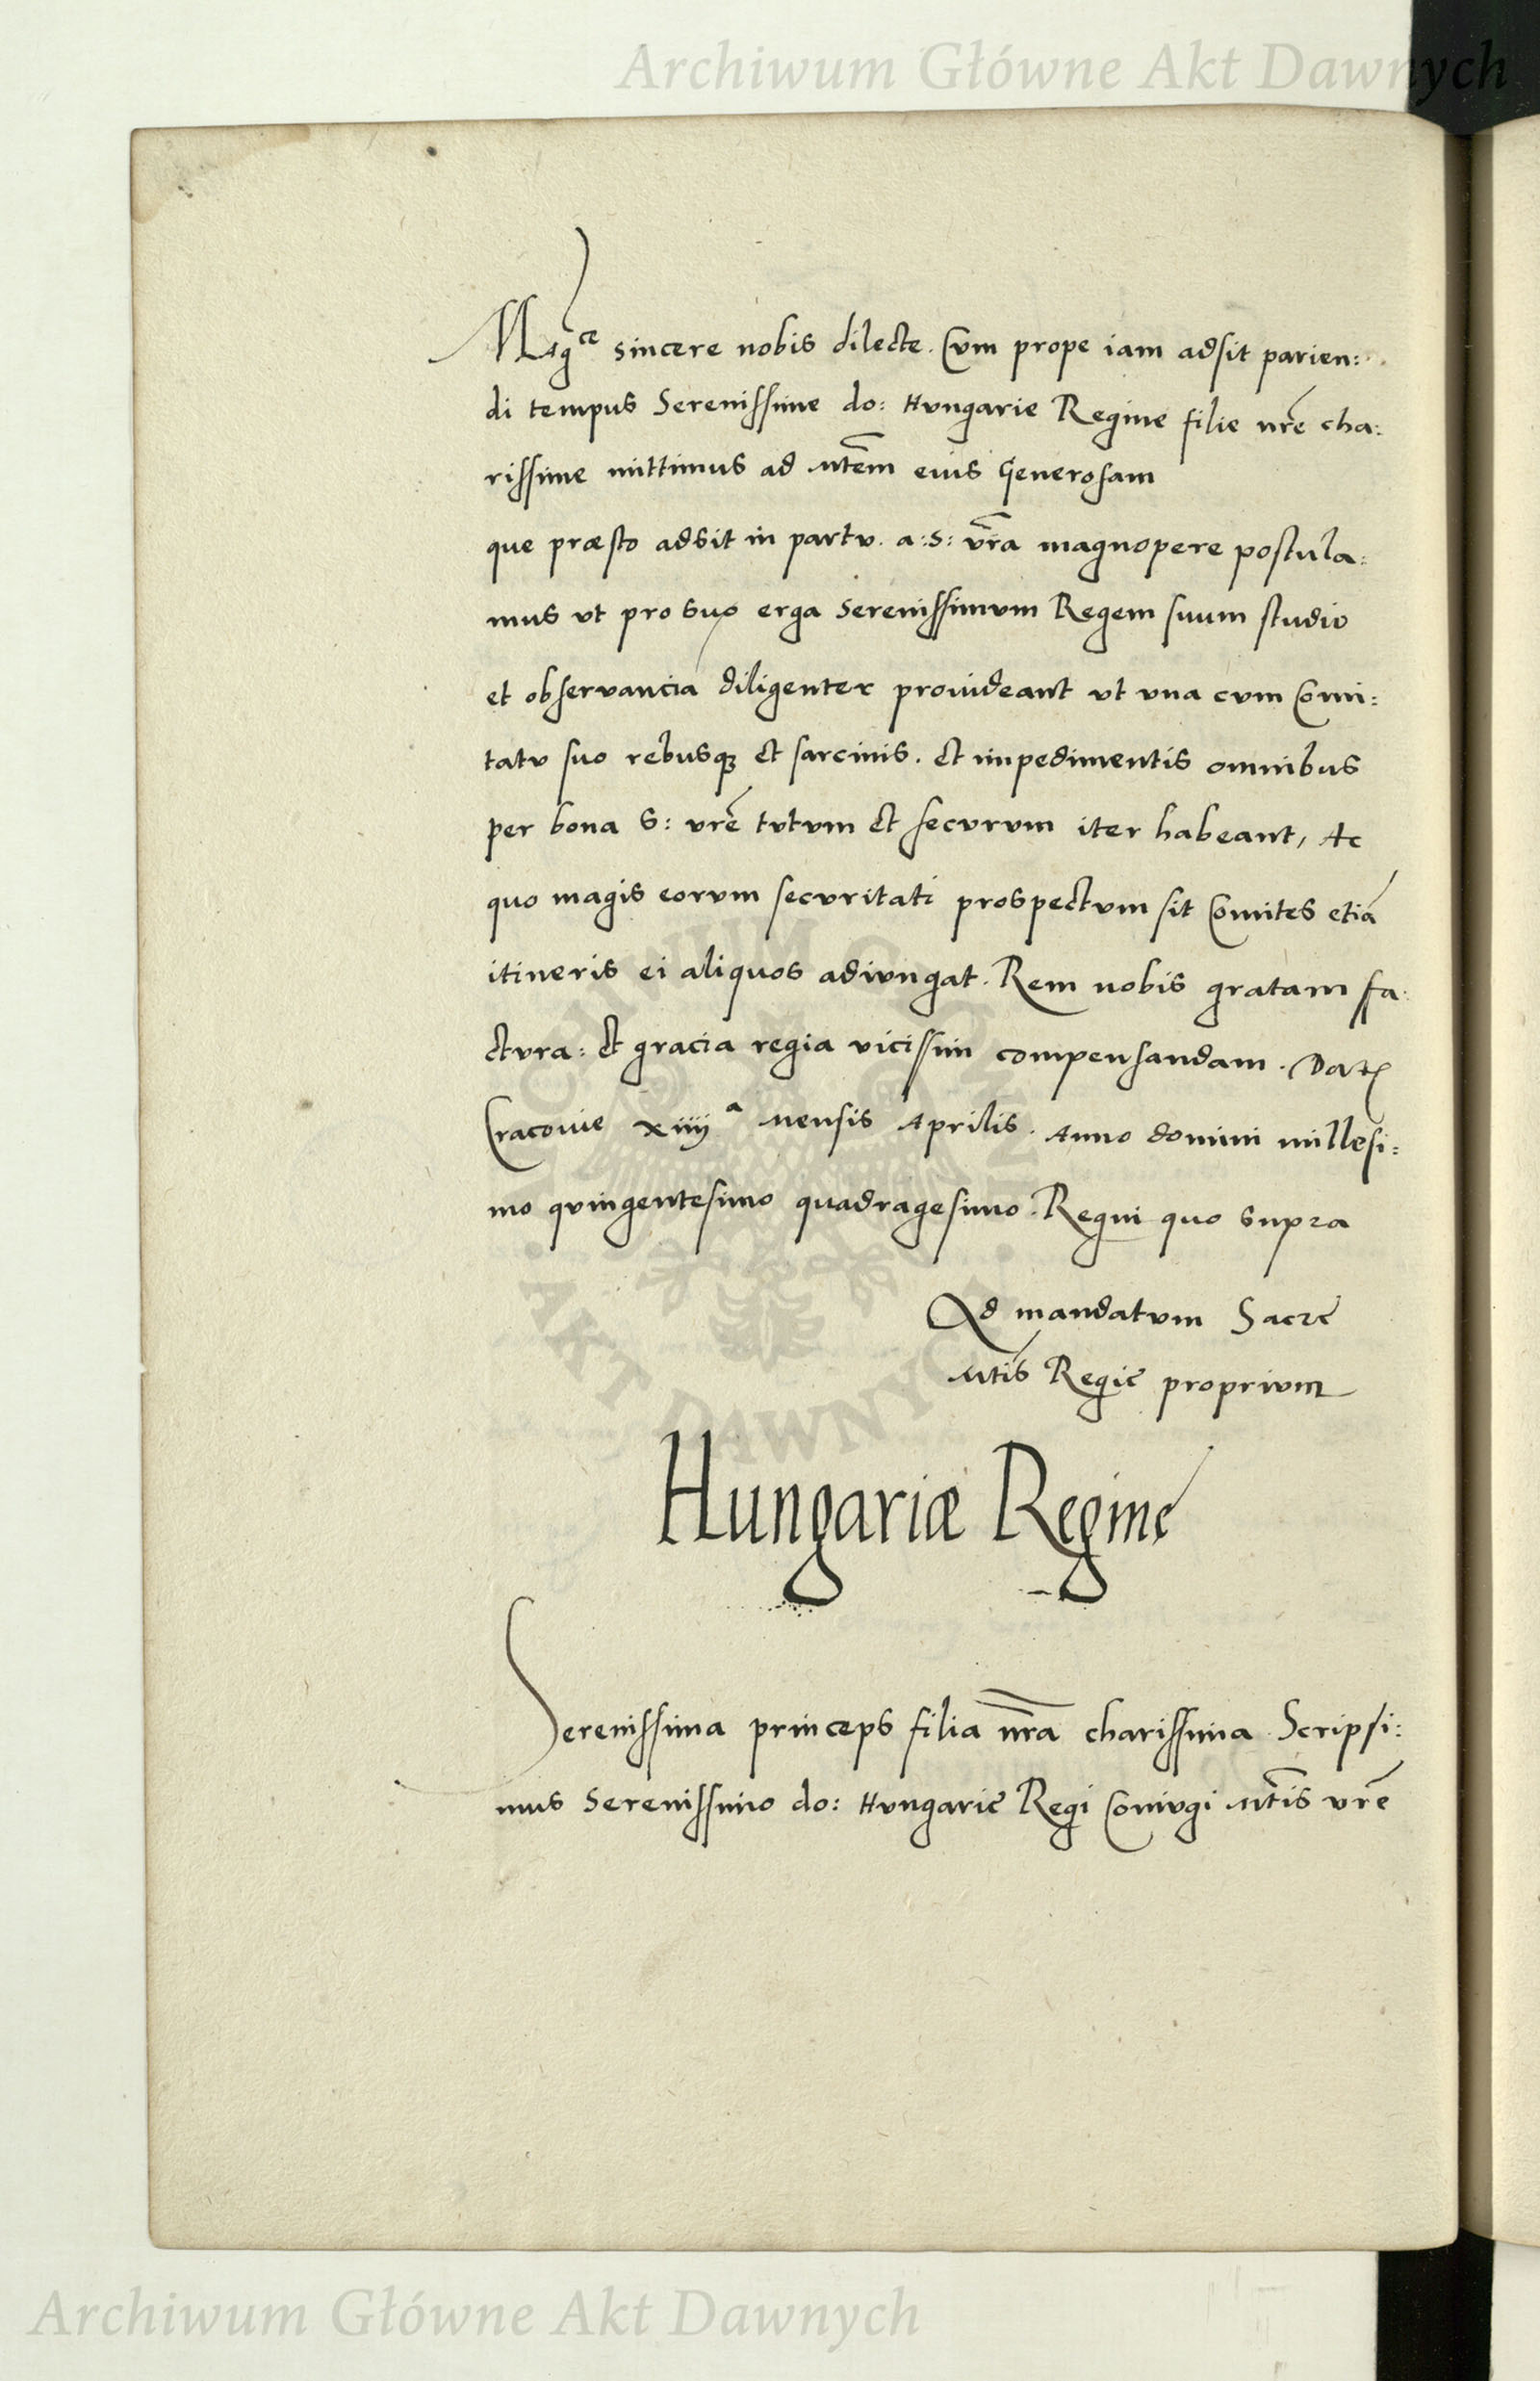 Archiwum Główne Akt Dawnych
Magce sincere nobis dilecte. Cum prope iam adsit parien:
di tempus Serenissime do: Hungarie Regine filie nrẽ cha:
rissime mittimus ad Mtẽm eius Generosam
que præsto adsit in partu. a: S: vrã magnopere postula:
mus vt pro suo erga Serenissimum Regem suum studio
et obseruancia diligenter prouideant vt vna cum Comi:
tatu suo rebusq; et sarcinis. et impedimentis omnibus
per bona S: vrẽ tutum et securum iter habeant, Ac
quo magis eorum securitati prospectum sit Comites etiã
itineris ei aliquos adiungat. Rem nobis gratam fa:
ctura: et gracia regia vicissim compensandam. Dat
Cracouie xiiii a mensis Aprilis. Anno domini millesi:
mo quingentesimo quadragesimo. Regni quo supra
Ad mandatum Sacre
Mtis Regie proprium
Hungariæ Regine
Serenissima princeps filia nrã charissima. Scripsi:
mus Serenissimo do: Hungarie Regi Coniugi Mtis vrẽ
ARCHIWUM GŁÓWNE AKT DAWNYCH
Archiwum Główne Akt Dawnych